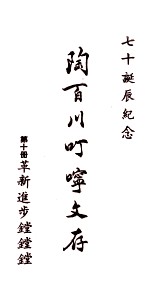 七十誕辰紀念
陶百川叮嚀文存
第十冊 革新進步鏜鏜鏜